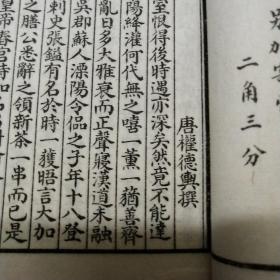 二角三分
唐權德輿撰
恨得後時遇亦深矣然竟不能達
陽絳灌何代無之嘻一薰一蕕善齊
亂日多大雅衰而正聲寢漢道未融
吳郡蘇人溧陽令偘之子年十八登
刺史張鎰有名於時 獲晤言大加
之贈公悉辭之領新茶一串而已是
皇帝春宮時知名